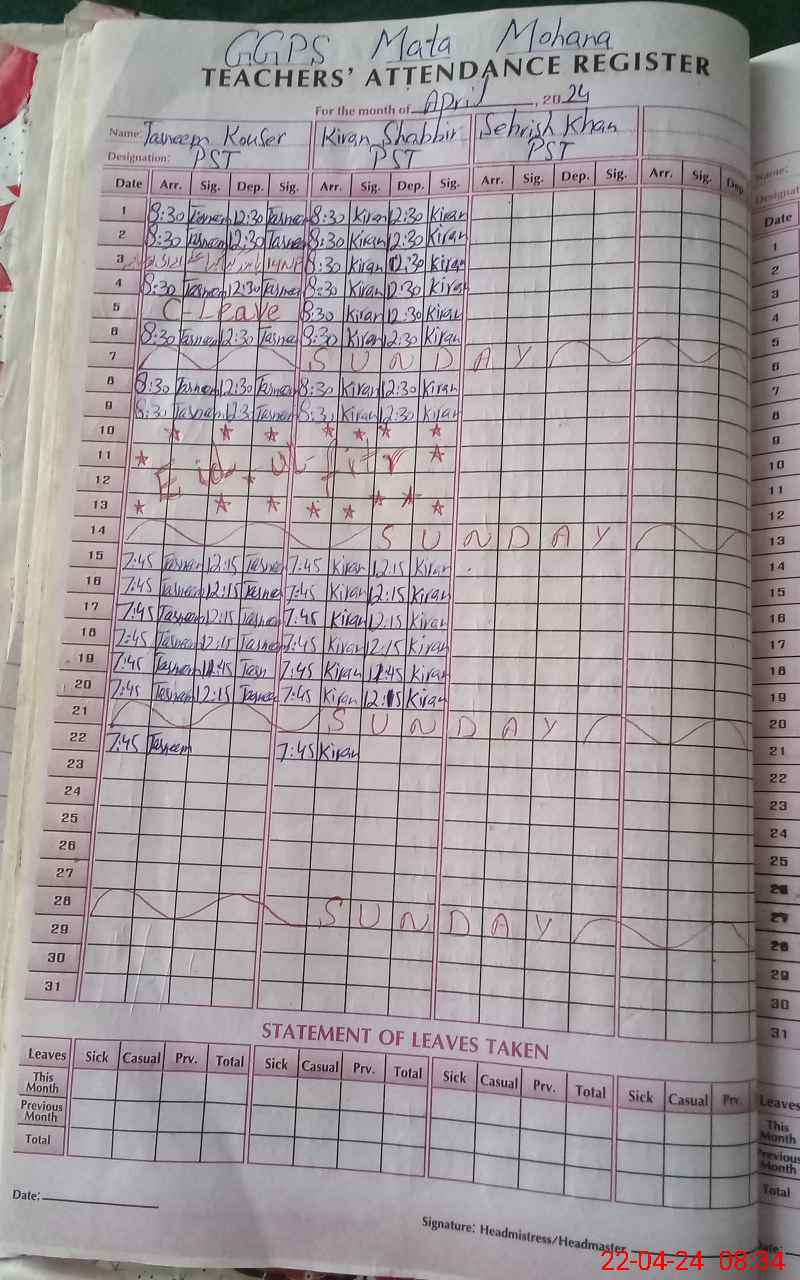 GGPS Mata Mohana
TEACHERS' ATTENDANCE REGISTER
For the month of April, 2024
Name: Tasneem Kouser Kiran Shabbir Sehrish Khan
Designation: PST PST PST
Date Arr. Sig. Dep. Sig. Arr. Sig. Dep. Sig. Arr. Sig. Dep. Sig. Arr. Sig. Dep
1 8:30 Tasneem 12:30 Tasneem 8:30 Kiran 12:30 Kiran
2 8:30 Tasneem 12:30 Tasneem 8:30 Kiran 12:30 Kiran
3 8:30 Kiran 12:30 Kiran
4 8:30 Tasneem 12:30 Tasneem 8:30 Kiran 12:30 Kiran
5 C-Leave 8:30 Kiran 12:30 Kiran
6 8:30 Tasneem 12:30 Tasneem 8:30 Kiran 12:30 Kiran
7 SUNDAY
8 8:30 Tasneem 12:30 Tasneem 8:30 Kiran 12:30 Kiran
9 8:3 Tasneem 12:3 Tasneem 8:3 Kiran 12:30 Kiran
10
11 Eid-ul-fitr
12
13
14 SUNDAY
15 7:45 Tasneem 12:15 Tasneem 7:45 Kiran 12:15 Kiran
16 7:45 Tasneem 12:15 Tasneem 7:45 Kiran 12:15 Kiran
17 7:45 Tasneem 12:15 Tasneem 7:45 Kiran 12:15 Kiran
18 7:45 Tasneem 12:15 Tasneem 7:45 Kiran 12:15 Kiran
19 7:45 Tasneem 11:45 Tasn 7:45 Kiran 11:45 Kiran
20 7:45 Tasneem 12:15 Tasneem 7:45 Kiran 12:15 Kiran
21 SUNDAY
22 7:45 Tasneem 7:45 Kiran
23
24
25
26
27
28 SUNDAY
29
30
31
STATEMENT OF LEAVES TAKEN
Leaves Sick Casual Prv. Total Sick Casual Prv. Total Sick Casual Prv. Total Sick Casual Prv.
This Month
Previous Month
Total
Date:
Signature: Headmistress/Headmaster
Name:
Designat
Date
1
2
3
4
5
6
7
8
9
10
11
12
13
14
15
16
17
18
19
20
21
22
23
24
25
26
27
28
29
30
31
Leaves
This Month
Previous Month
Total
22-04-24 08:34